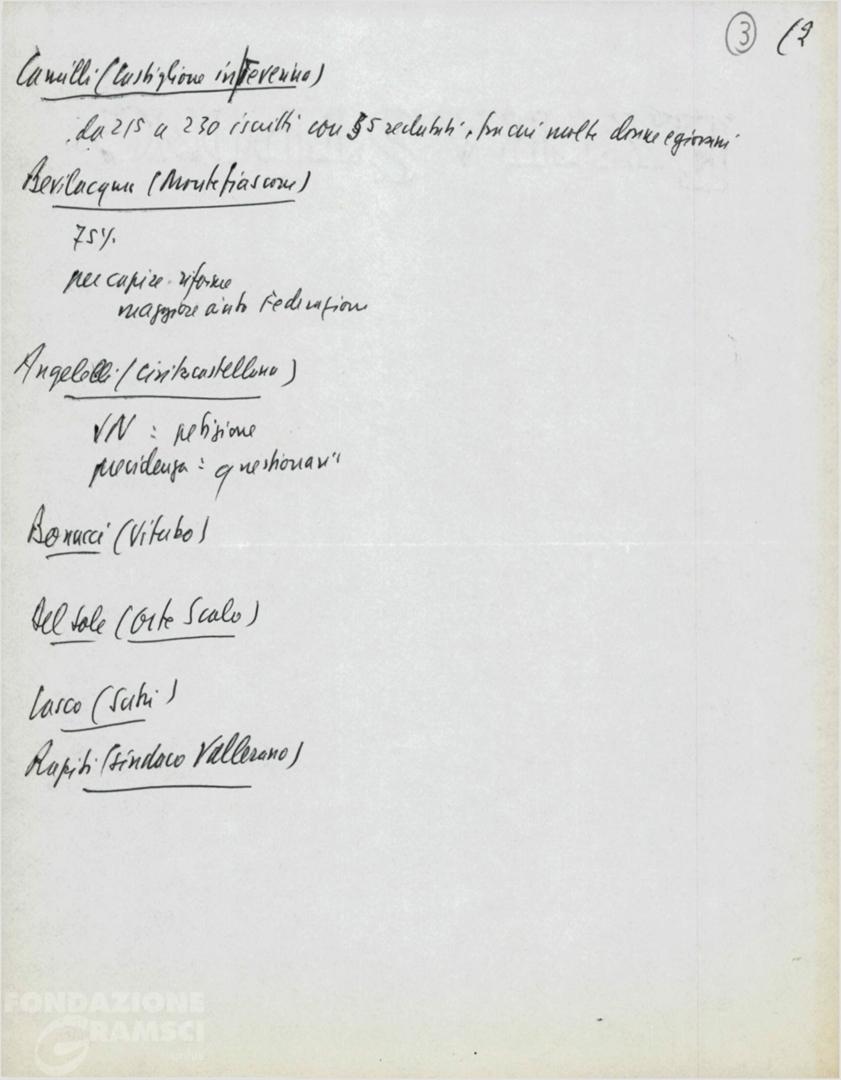 3 (2
Camilli (Castiglione in Teverina)
da 215 a 230 iscritti con 55 reclutati, fra cui molte donne e giovani
Bevilacqua (Montefiascone)
75%
per capire riforme
maggiore aiuto Federazione
Angelelli (Civitacastellana)
VN : petizione
previdenza : questionari
Bonucci (Viterbo)
Del Sole (Orte Scalo)
Casco (Sutri)
Rapiti (Sindaco Vallerano)
FONDAZIONE
GRAMSCI
onlus